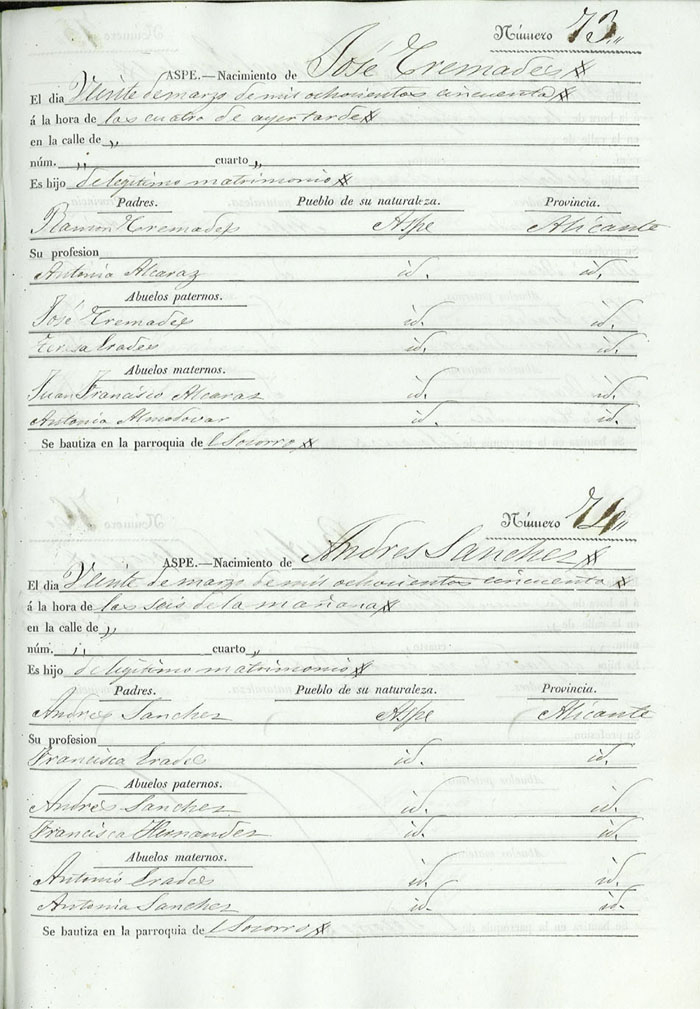 Número 73
ASPE.—Nacimiento de José Cremades
El dia Veinte de marzo de mil ochocientos cincuenta
á la hora de las cuatro de ayer tarde
en la calle de „
núm. „ cuarto „
Es hijo de legitimo matrimonio
Padres. Pueblo de su naturaleza. Provincia.
Ramon Cremades Aspe Alicante
Su profesion
Antonia Alcaraz id. id.
Abuelos paternos.
José Cremades id. id.
Teresa Erades id. id.
Abuelos maternos.
Juan Francisco Alcaraz id. id.
Antonia Almodovar id. id.
Se bautiza en la parroquia de l Socorro
Número 74
ASPE.—Nacimiento de Andres Sanchez
El dia Veinte de marzo de mil ochocientos cincuenta
á la hora de las seis de la mañana
en la calle de „
núm. „ cuarto „
Es hijo de legitimo matrimonio
Padres. Pueblo de su naturaleza. Provincia.
Andres Sanchez Aspe Alicante
Su profesion
Francisca Erades id. id.
Abuelos paternos.
Andres Sanchez id. id.
Francisca Hernandez id. id.
Abuelos maternos.
Antonio Erades id. id.
Antonia Sanchez id. id.
Se bautiza en la parroquia de l Socorro